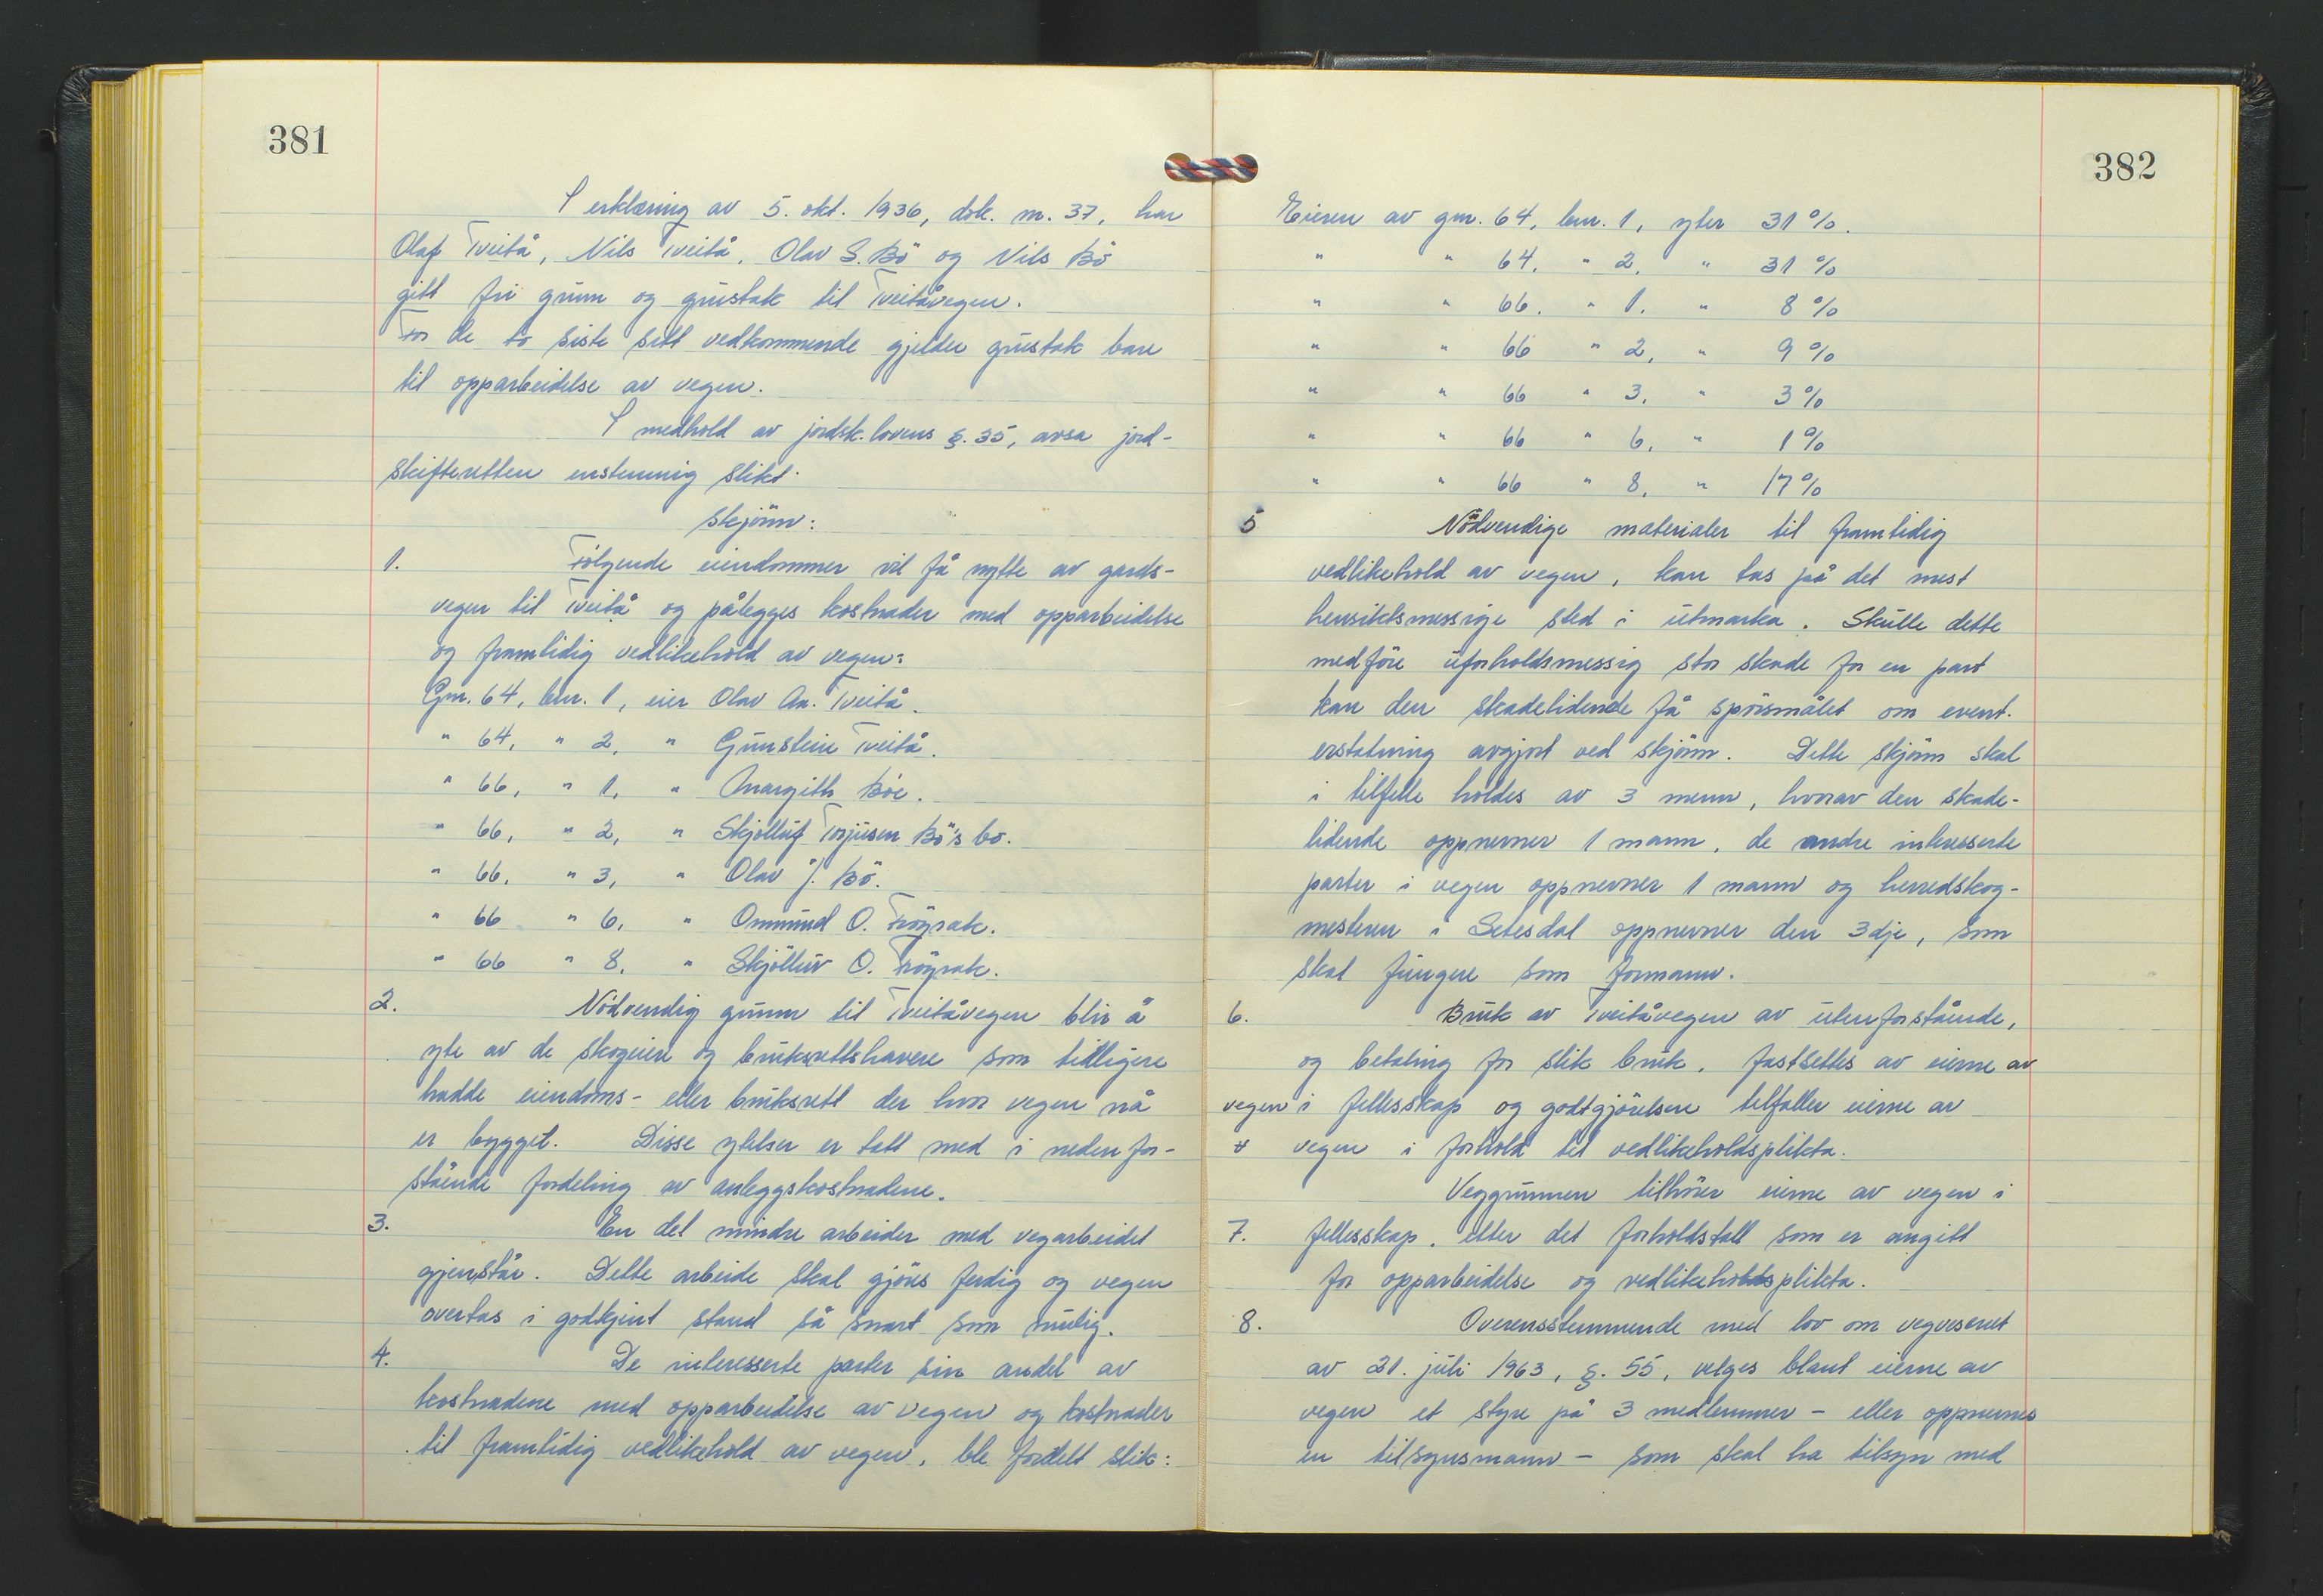 381
I erklæring av 5. okt. 1936, dok. nr. 37, har
Olaf Tveitå, Nils Tveitå, Olav S. Bö og Nils Bö
gitt fri grunn og grustak til Tveitåvegen.
For de to siste sitt vedkommende gjelder grustak bare
til opparbeidelse av vegen.
I medhold av jordsk.lovens §. 35, avsa jord-
skifteretten enstemmig slikt
skjönn:
1. Fölgende eiendommer vil få nytte av gards-
vegen til Tveitå og pålegges kostnader med opparbeidelse
og framtidig vedlikehold av vegen:
Gnr. 64, bnr. 1, eier Olav Aa. Tveitå.
" 64, " 2, " Gunstein Tveitå.
" 66, " 1, " Margith Böe.
" 66, " 2, " Skjölluf Torjusen Bö's bo.
" 66, " 3, " Olav J. Bö.
" 66 " 6, " Ommund O. Fröysak.
" 66 " 8, " Skjölluv O. Fröysak.
2. Nödvendig grunn til Tveitåvegen blir å
yte av de skogeiere og bruksrettshavere som tidligere
hadde eiendoms- eller bruksrett der hvor vegen nå
er bygget. Disse ytelser er tatt med i nedenfor-
stående fordeling av anleggskostnadene.
3. En del mindre arbeider med vegarbeidet
gjenstår. Dette arbeide skal gjöres ferdig og vegen
overtas i godkjent stand så snart som mulig.
4. De interesserte parter sin andel av
kostnadene med opparbeidelse av vegen og kostnader
til framtidig vedlikehold av vegen, ble fordelt slik:
382
Eieren av gnr. 64, bnr. 1, yter 31 %.
" " 64, " 2, " 31 %
" " 66. " 1. " 8 %
" " 66 " 2, " 9 %
" " 66 " 3. " 3 %
" " 66 " 6, " 1 %
" " 66 " 8, " 17 %
5 Nödvendige materialer til framtidig
vedlikehold av vegen, kan tas på det mest
hensiktsmessige sted i utmarka. Skulle dette
medföre uforholdsmessig stor skade for en part
kan den skadelidende få spörsmålet om event.
erstatning avgjort ved skjönn. Dette skjönn skal
i tilfelle holdes av 3 menn, hvorav den skade-
lidende oppnevner 1 mann, de andre interesserte
parter i vegen oppnevner 1 mann og herredskog-
mesteren i Setesdal oppnevner den 3dje, som
skal fungere som formann.
6. Bruk av Tveitåvegen av utenforstående,
og betaling for slik bruk, fastsettes av eierne av
vegen i fellesskap og godtgjörelsen tilfaller eierne av
vegen i forhold til vedlikeholdsplikta.
Veggrunnen tilhörer eierne av vegen i
7. fellesskap, etter det forholdstall som er angitt
for opparbeidelse og vedlikeholdsplikta.
8. Overensstemmende med lov om vegvesenet
av 21. juli 1963, §. 55, velges blant eierne av
vegen et styre på 3 medlemmer - eller oppnevnes
en tilsynsmann - som skal ha tilsyn med